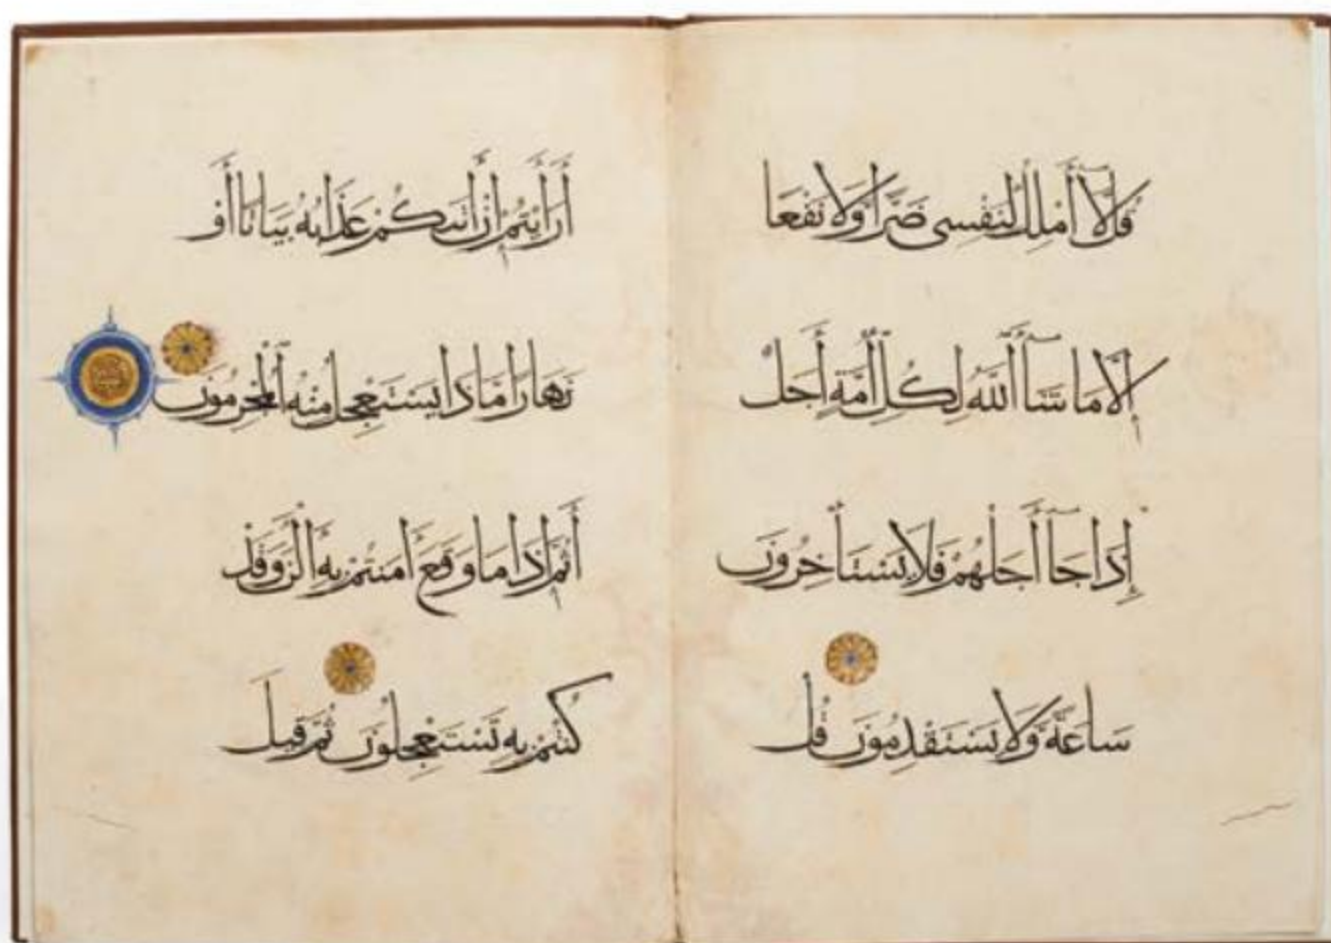 قُل لَّآ أَمْلِكُ لِنَفْسِى ضَرًّا وَلَا نَفْعًا
إِلَّا مَا شَآءَ ٱللَّهُ لِكُلِّ أُمَّةٍ أَجَلٌ
إِذَا جَآءَ أَجَلُهُمْ فَلَا يَسْتَأْخِرُونَ
سَاعَةً وَلَا يَسْتَقْدِمُونَ قُلْ
أَرَأَيْتُمْ إِنْ أَتَىٰكُمْ عَذَابُهُ بَيَاتًا أَوْ
نَهَارًا مَّاذَا يَسْتَعْجِلُ مِنْهُ ٱلْمُجْرِمُونَ
أَثُمَّ إِذَا مَا وَقَعَ ءَامَنتُم بِهِ ءَآلْـَٰنَ وَقَدْ
كُنتُم بِهِ تَسْتَعْجِلُونَ ثُمَّ قِيلَ